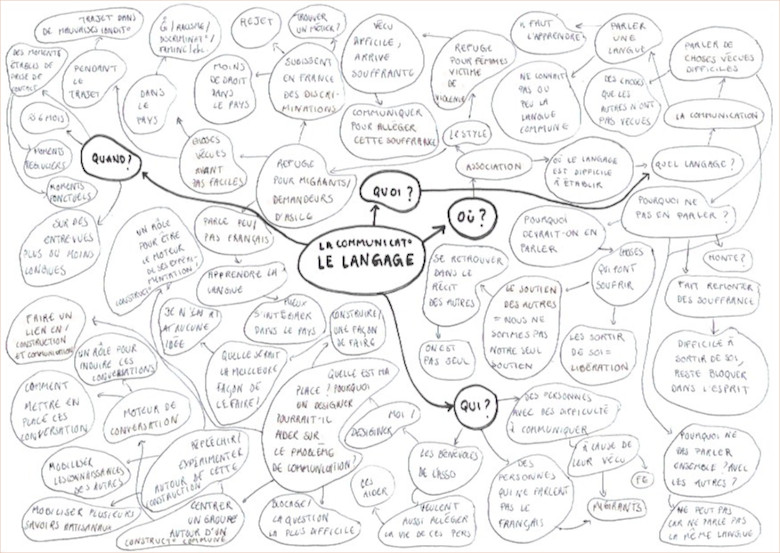 TRAJET DANS
DE MAUVAISES CONDIT°
DES MOMENTS
PENDANT
LE
TRAJET
± 6 MOIS
MOMENTS
RÉGULIERS
MOMENTS
PONCTUELS
QUAND?
SUR DES
ENTREVUES
PLUS OU MOINS
LONGUES
DANS
LE
PAYS
RACISME/
DISCRIMINAT°/
FAMINE/etc.
REJET
TROUVER
UN MÉTIER?
MOINS
DE DROIT
DANS
LE PAYS
SUBISSENT
EN FRANCE
DES DISCRI-
MINATIONS
CHOSES
VÉCUES
AVANT
PAS FACILES
REFUGE
POUR MIGRANTS/
DEMANDEURS
D'ASILE
VÉCU
DIFFICILE,
ARRIVE
SOUFFRANTE
COMMUNIQUER
POUR ALLÉGER
CETTE SOUFFRANCE
REFUGE
POUR FEMMES
VICTIME
DE
VIOLENCE
LE STYLE
ASSOCIATION
IL FAUT
L'APPRENDRE
PARLER
UNE
LANGUE
NE CONNAIT
PAS OU
PEU LA
LANGUE
COMMUNE
DES CHOSES
QUE LES
AUTRES N'ONT
PAS VÉCUES
PARLER DE
CHOSES VÉCUES
DIFFICILES
LA COMMUNICATION
OÙ LE LANGAGE
EST DIFFICILE
À ÉTABLIR
QUEL LANGAGE?
QUOI?
OÙ?
LA COMMUNICAT°
LE LANGAGE
PARLE PEU/
PAS FRANÇAIS
APPRENDRE LA
LANGUE
MIEUX
S'INTÉGRER
DANS LE PAYS
UN RÔLE
POUR ÊTRE
LE MOTEUR
CONSTRUCT°
JE N'EN AI
AUCUNE
IDÉE
CONSTRUIRE/
UNE FAÇON
DE FAIRE
QUELLE SERAIT
LA MEILLEURE
FAÇON DE
LE FAIRE?
POURQUOI
DEVRAIT-ON EN
PARLER
POURQUOI NE
PAS EN PARLER?
SE RETROUVER
DANS LE
RÉCIT
DES AUTRES
ON EST
PAS SEUL
LE SOUTIEN
DES AUTRES
= NOUS NE
SOMMES PAS
NOTRE SEUL
SOUTIEN
CHOSES
QUI FONT
SOUFFRIR
LES SORTIR
DE SOI =
LIBÉRATION
HONTE?
FAIT REMONTER
DES SOUFFRANCE
DIFFICILE À
SORTIR DE SOI,
RESTE BLOQUER
DANS L'ESPRIT
FAIRE UN
LIEN EN/
CONSTRUCTION
ET COMMUNICATION
UN RÔLE POUR
INDUIRE CES
CONVERSATIONS
COMMENT
METTRE EN
PLACE CES
CONVERSATION
MOTEUR DE
CONVERSATION
MOBILISER
LES CONNAISSANCES
DES AUTRES
MOBILISER PLUSIEURS
SAVOIRS ARTISANAUX
RÉFLÉCHIR/
EXPÉRIMENTER
AUTOUR DE CETTE
CONSTRUCTION
CENTRER
UN GROUPE
AUTOUR D'UN
CONSTRUCT° COMMUNE
QUELLE EST MA
PLACE? POURQUOI
UN DESIGNER
POURRAIT-IL
AIDER SUR
LE PROBLÈME
DE COMMUNICATION?
BLOCAGE/
LA QUESTION
LA PLUS DIFFICILE
MOI/
DESIGNER
LES AIDER
LES
BÉNÉVOLES
DE L'ASSO
VEULENT
AUSSI ALLÉGER
LA VIE DE CES PERS
QUI?
DES PERSONNES
AVEC DES DIFFICULTÉ
À COMMUNIQUER
DES
PERSONNES
QUI NE PARLENT
PAS LE
FRANÇAIS
À CAUSE DE
LEUR VÉCU
MIGRANTS
POURQUOI NE
PAS PARLER
ENSEMBLE? AVEC
LES AUTRES?
NE PEUT PAS
CAR NE PARLE PAS
LA MÊME LANGUE